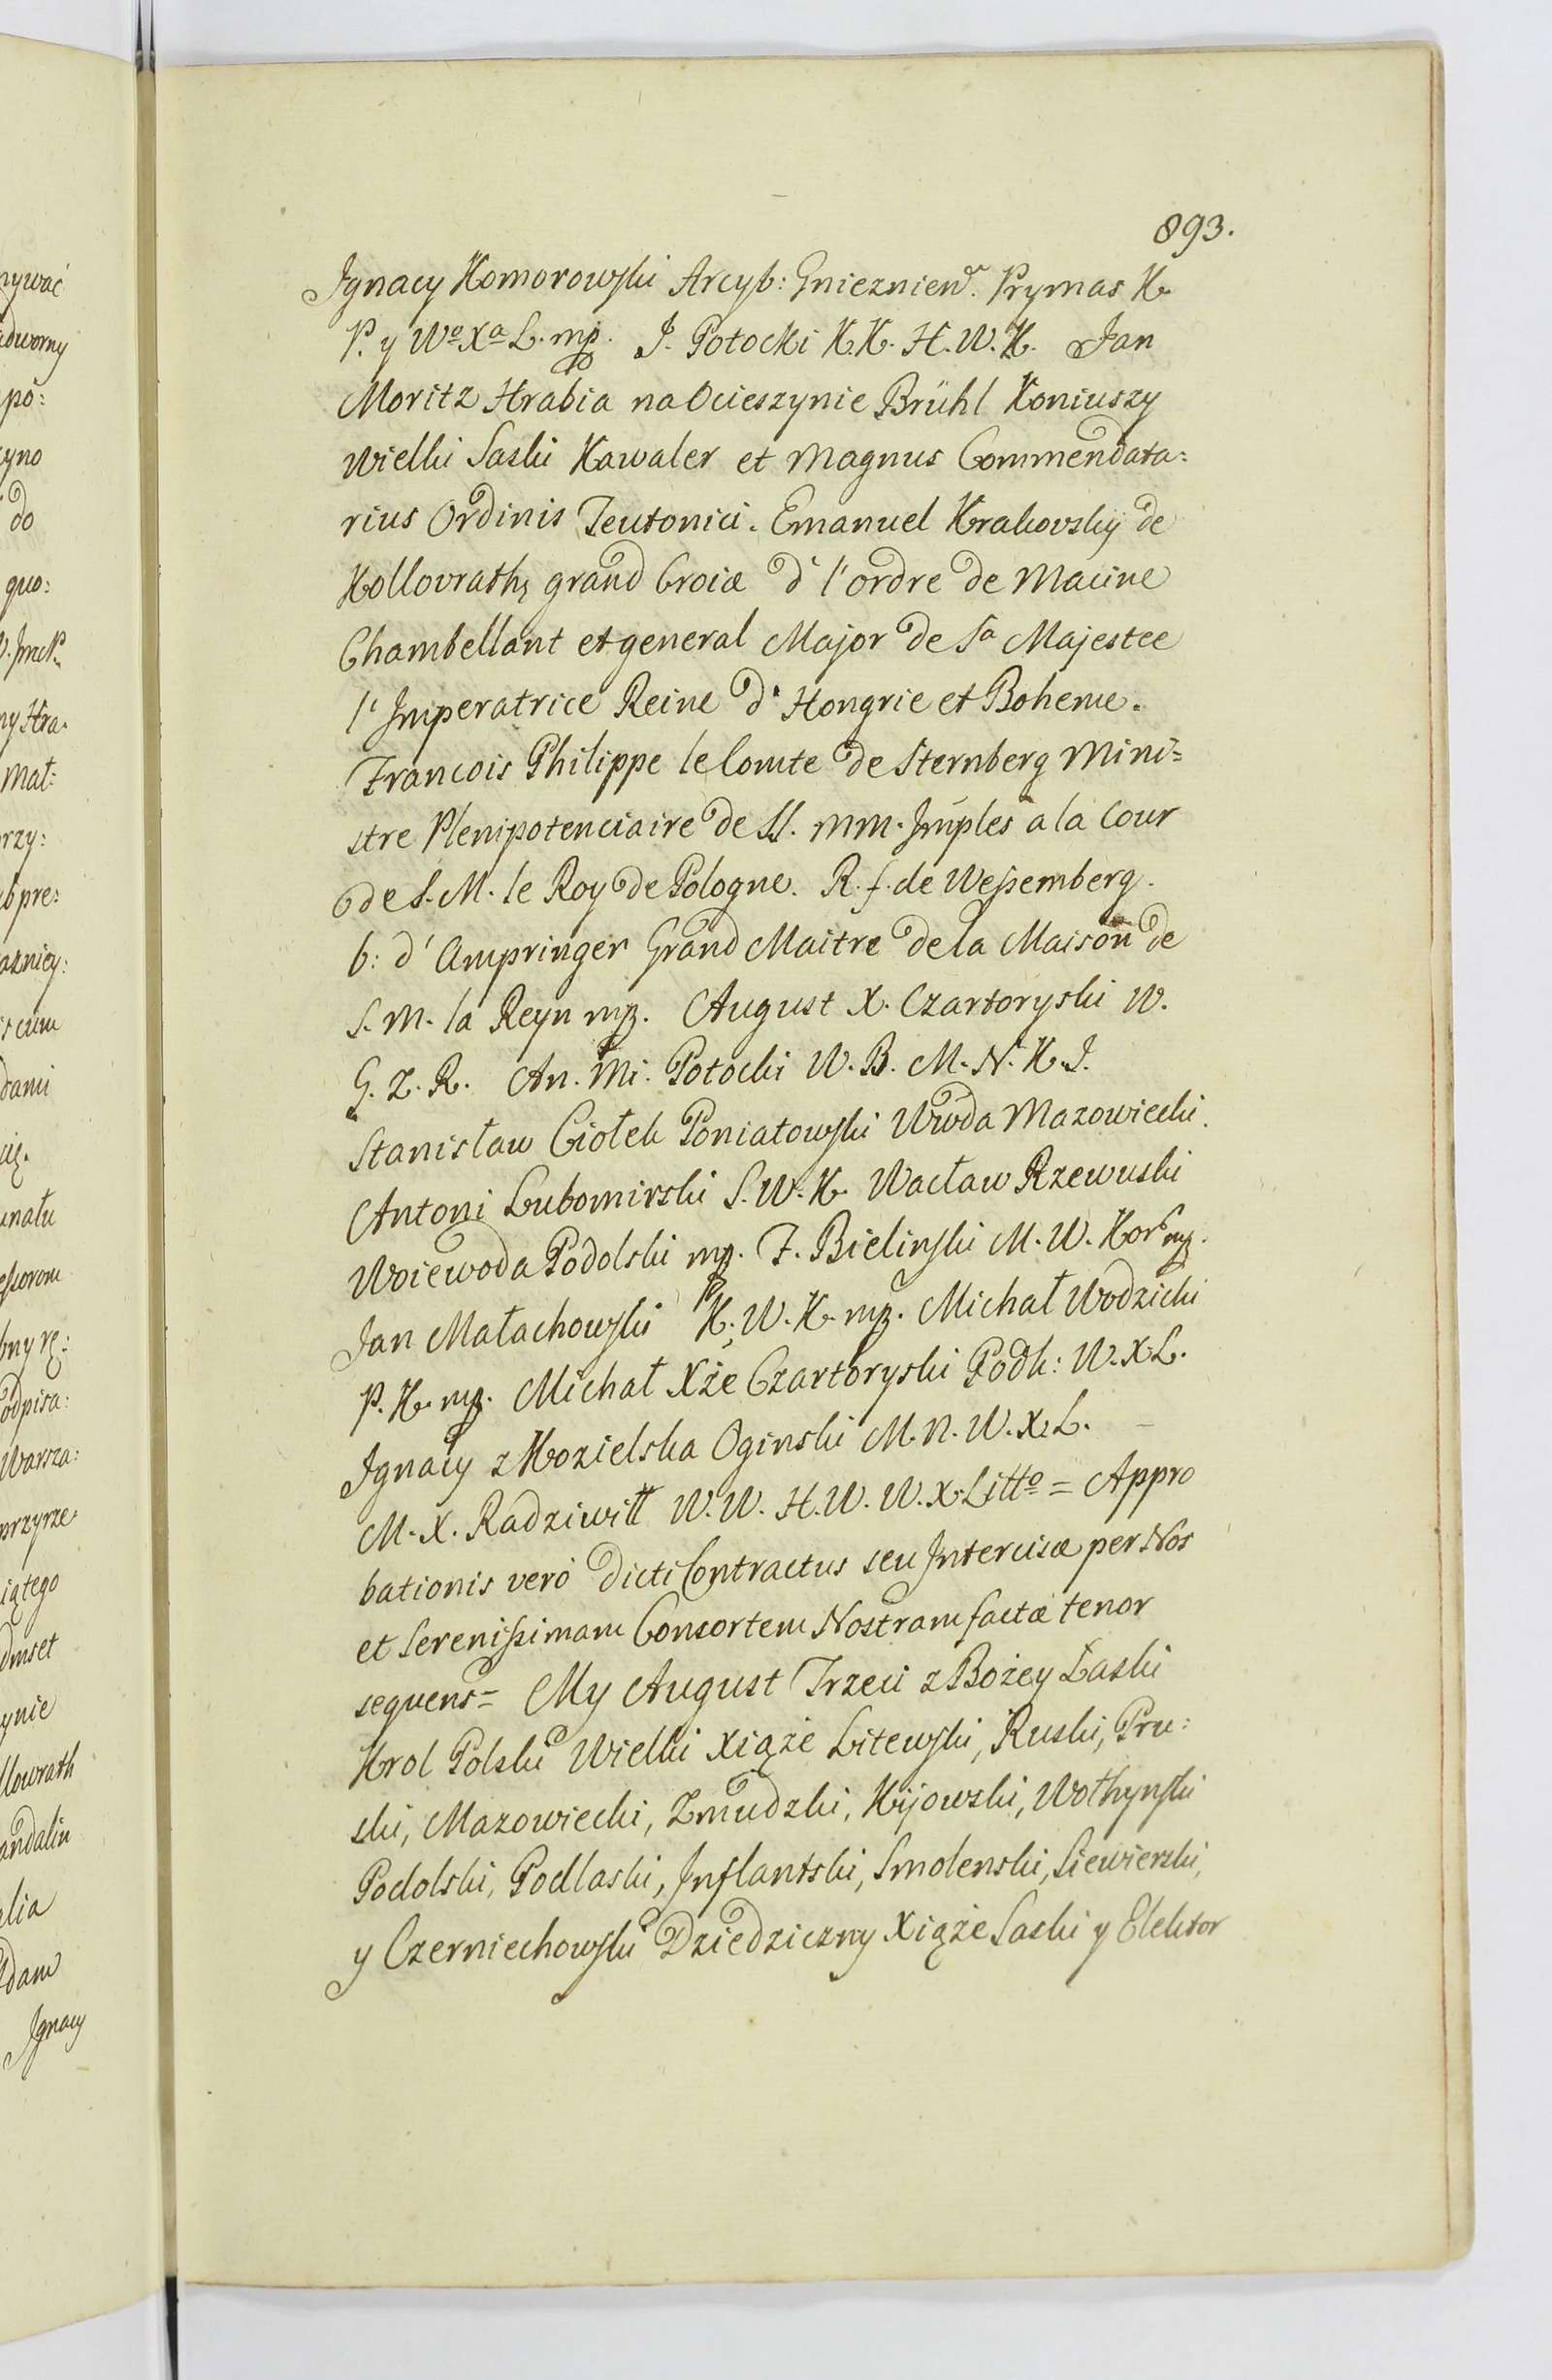 893.
Ignacy Komorowski Arcyb: Gnieznien. Prymas K.
P. y Wo Xa L. mp. J. Potocki K.K. H.W.K. Jan
Moritz Hrabia na Ocieszynie Brühl Koniuszy
Wielki Saski Kawaler et Magnus Commendata:
rius Ordinis Teutonici. Emanuel Krakovsky de
Kollovrath, grand Croix d' l'ordre de
Chambellant et general Major de Sa Majestee
l'Imperatrice Reine d'Hongrie et Boheme.
Francois Philippe le Comte de Sternberg Mini=
stre Plenipotenciaire de SS. MM. Imples a la Cour
de S. M. le Roy de Pologne. R. f. de Wessemberg.
b: d'Ampringer Grand Maitre de la Maison de
S. M. la Reyn mp. August X. Czartoryski W.
G. Z. R. An. Mi. Potocki W. B. M. N. K. J.
Stanisław Ciołek Poniatowski Wwda Mazowiecki.
Antoni Lubomirski S. W. K. Wacław Rzewuski
Woiewoda Podolski mp. F. Bielinski M. W. Kor mp.
Jan Małachowski K. W. K. mp. Michał Wodzicki
P. K. mp. Michał Xże Czartoryski Podk: W. X. L.
Ignacy z Kozielska Oginski M. N. W. X. L. -
M. X. Radziwiłł W. W. H. W. W. X. Litto = Appro
bationis verò dicti Contractus seu Intercisæ per Nos
et Serenissimam Consortem Nostram factæ tenor
sequens = My August Trzeci z Bożey Łaski
Krol Polski Wielki Xiąże Litewski, Ruski, Pru:
ski, Mazowiecki, Zmudzki, Kijowski, Wołhynski
Podolski, Podlaski, Inflantski, Smolenski, Siewierski,
y Czerniechowski Dziedziczny Xiąże Saski y Elektor